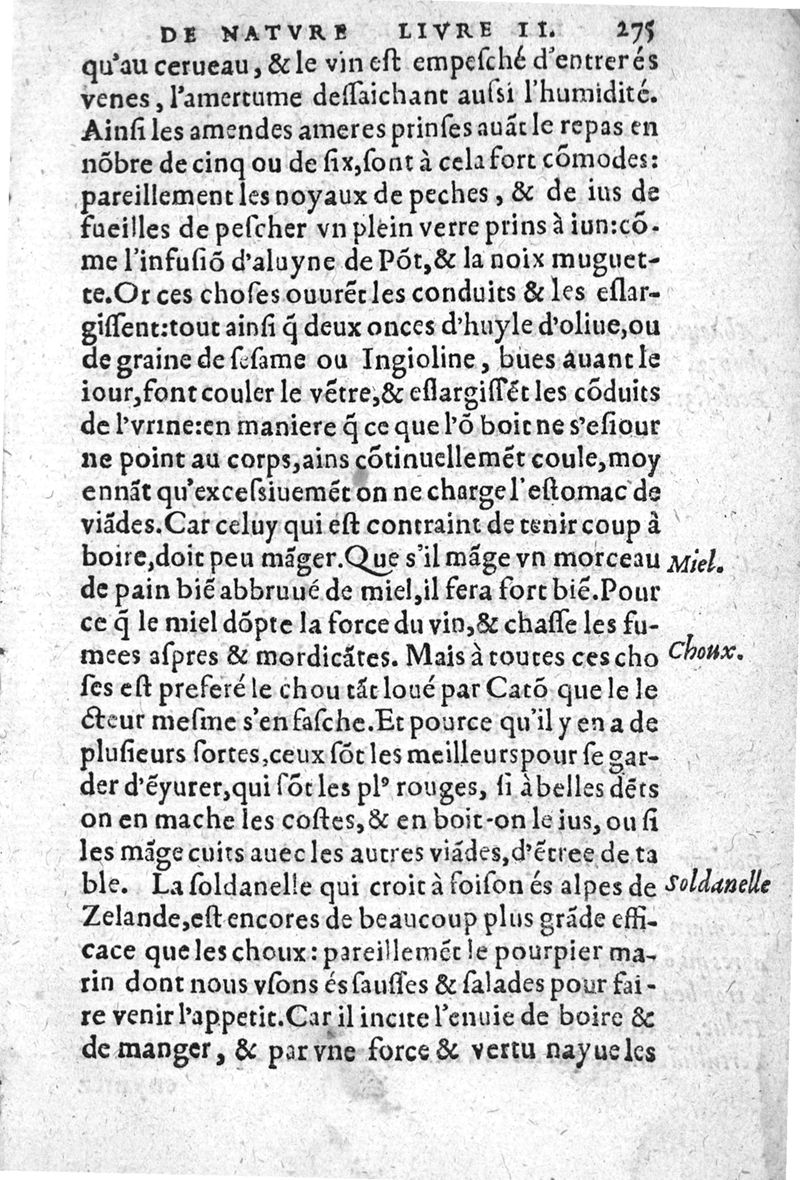 DE NATVRE LIVRE II. 275
qu'au cerueau, & le vin eſt empeſché d'entrer és
venes, l'amertume deſſaichant auſsi l'humidité.
Ainſi les amendes ameres prinſes auãt le repas en
nõbre de cinq ou de ſix, ſont à cela fort cõmodes:
pareillement les noyaux de peches, & de ius de
fueilles de peſcher vn plein verre prins à iun:cõ-
me l'infuſiõ d'aluyne de Põt, & la noix muguet-
te. Or ces choſes ouurẽt les conduits & les eſlar-
giſſent: tout ainſi q̃ deux onces d'huyle d'oliue, ou
de graine de ſeſame ou Ingioline, bues auant le
iour, font couler le vẽtre, & eſlargiſſẽt les cõduits
de l'vrine: en maniere q̃ ce que l'õ boit ne s'eſiour
ne point au corps, ains cõtinuellemẽt coule, moy
ennãt qu'exceſsiuemẽt on ne charge l'eſtomac de
viãdes. Car celuy qui eſt contraint de tenir coup à
boire, doit peu mãger. Que s'il mãge vn morceau
Miel.
de pain biẽ abbruué de miel, il fera fort biẽ. Pour
ce q̃ le miel dõpte la force du vin, & chaſſe les fu-
mees aſpres & mordicãtes. Mais à toutes ces cho
Choux.
ſes eſt preferé le chou tãt loué par Catõ que le le
cteur meſme s'en faſche. Et pource qu'il y en a de
pluſieurs ſortes, ceux ſõt les meilleurs pour ſe gar-
der d'ẽyurer, qui ſõt les plꝰ rouges, ſi à belles dẽts
on en mache les coſtes, & en boit-on le ius, ou ſi
les mãge cuits auec les autres viãdes, d'ẽtree de ta
ble. La ſoldanelle qui croit à foiſon és alpes de
Soldanelle
Zelande, eſt encores de beaucoup plus grãde effi-
cace que les choux: pareillemẽt le pourpier ma-
rin dont nous vſons és ſauſſes & ſalades pour fai-
re venir l'appetit. Car il incite l'enuie de boire &
de manger, & par vne force & vertu nayue les